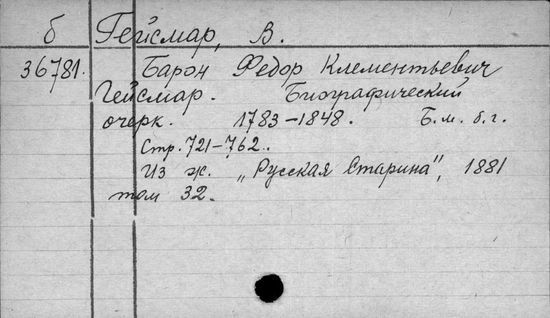 б Гейсмар, В.
36781. Барон Федор Клементьевич
Гейсмар. Биографический
очерк. 1783-1848. Б.м. б.г.
Стр. 721-762.
Из ж. „Русская Старина", 1881
том 32.